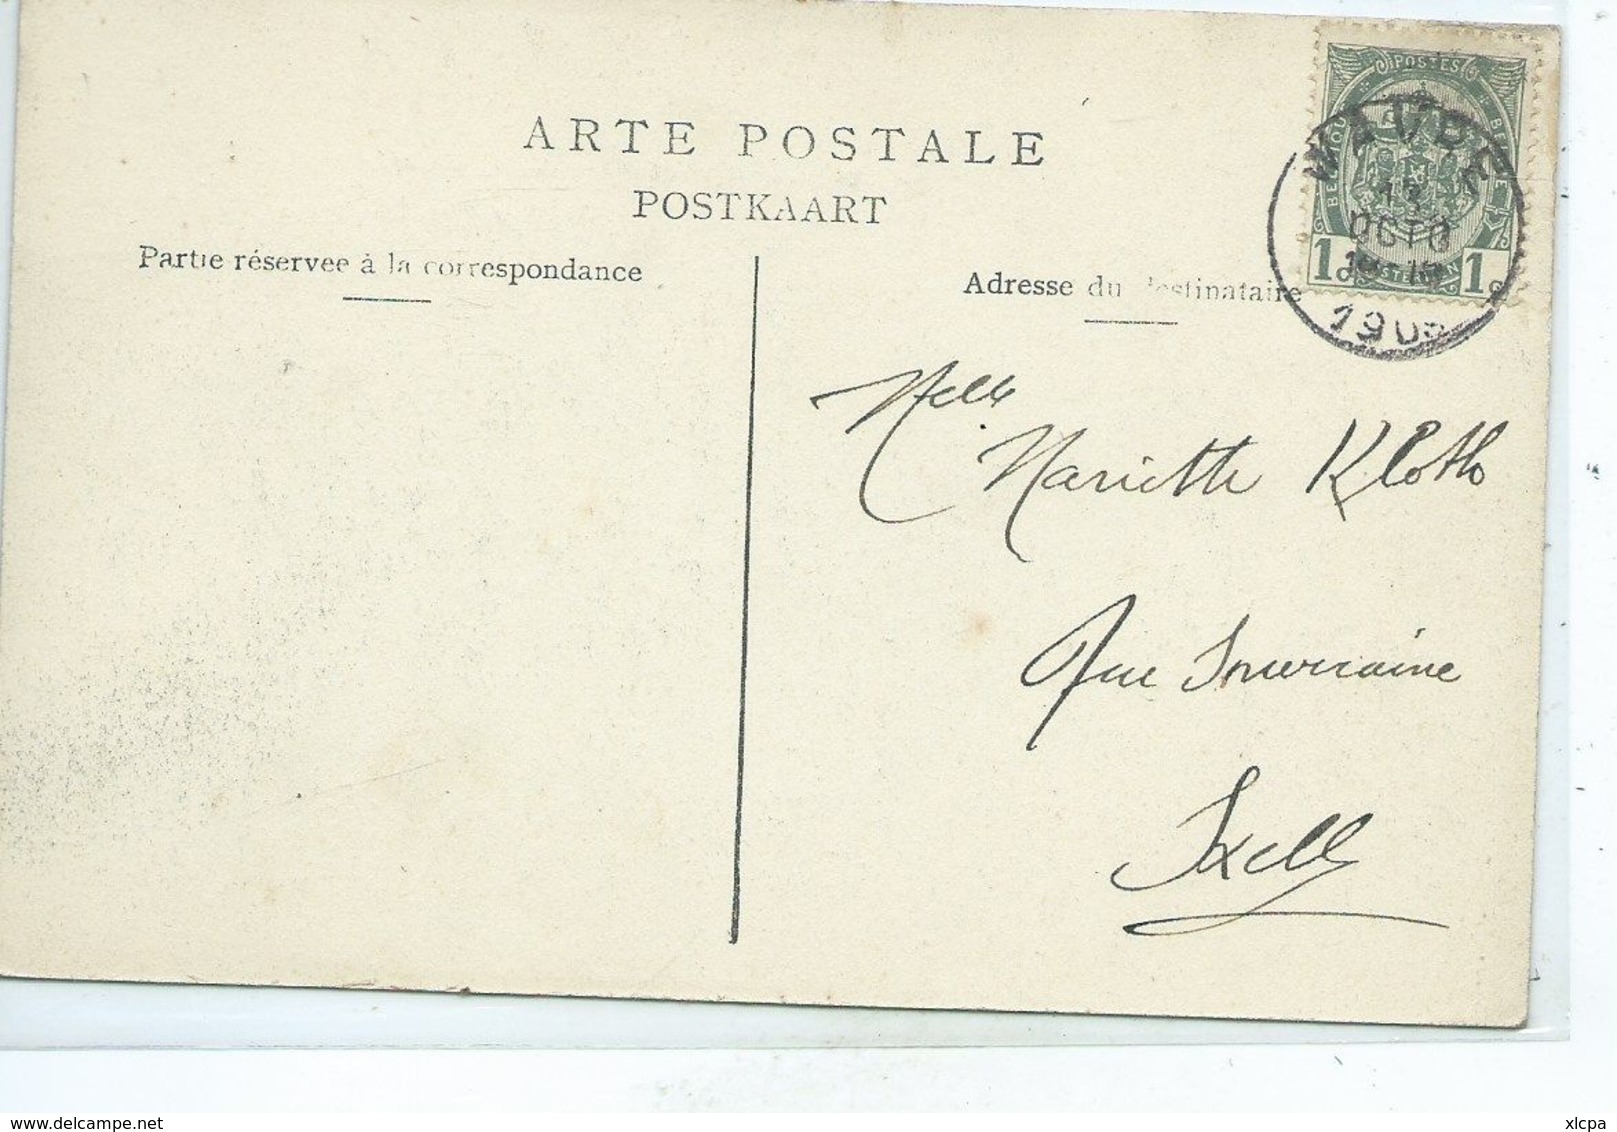 ARTE POSTALE
POSTKAART
Partie réservee à la correspondance
Adresse du destinataire
POSTES
1c 1c
WAVRE
13
OCTO
190
Melle
Mariette Klotho
Rue Souveraine
Ixelles
delcampe.net
xlcpa